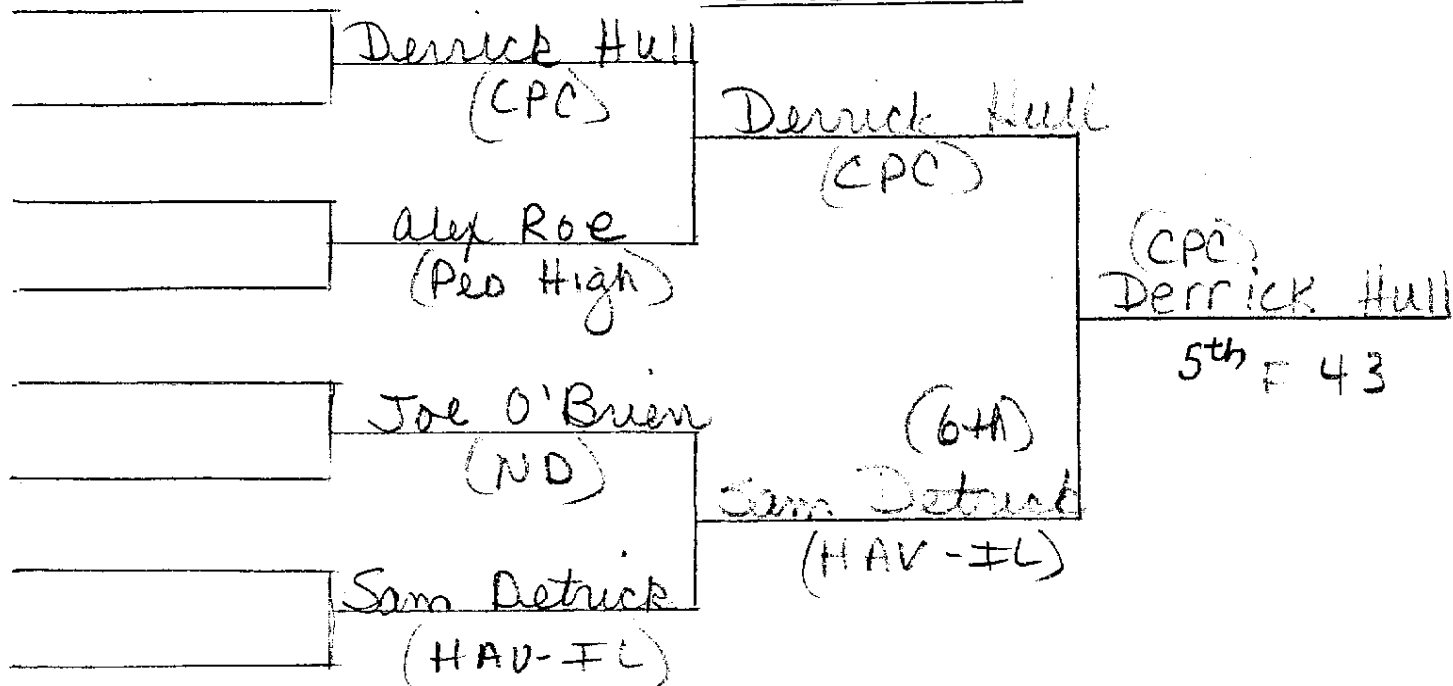 Derrick Hull
(CPC)
Alex Roe
(Peo High)
Joe O'Brien
(ND)
Sam Detrick
(HAV-IL)
Derrick Hull
(CPC)
(6th)
Sam Detrick
(HAV-IL)
(CPC)
Derrick Hull
5th F 43